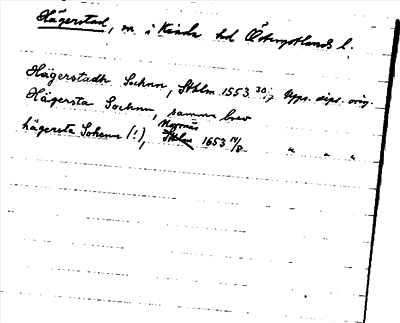 Hägerstad, sn i Kinda hd Östergötlands l.
Hägerstadh Sochnn, Sthlm 1553 30/7 Upps. dipl. orig.
Hägersta Sochnn, samma brev
Norrnäs
hägersta Sokenn (!), Sthlm 1653 14/8 " " "